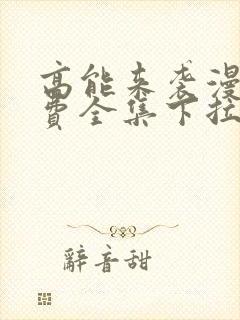 高能来袭漫
费全集下拉
辞音甜